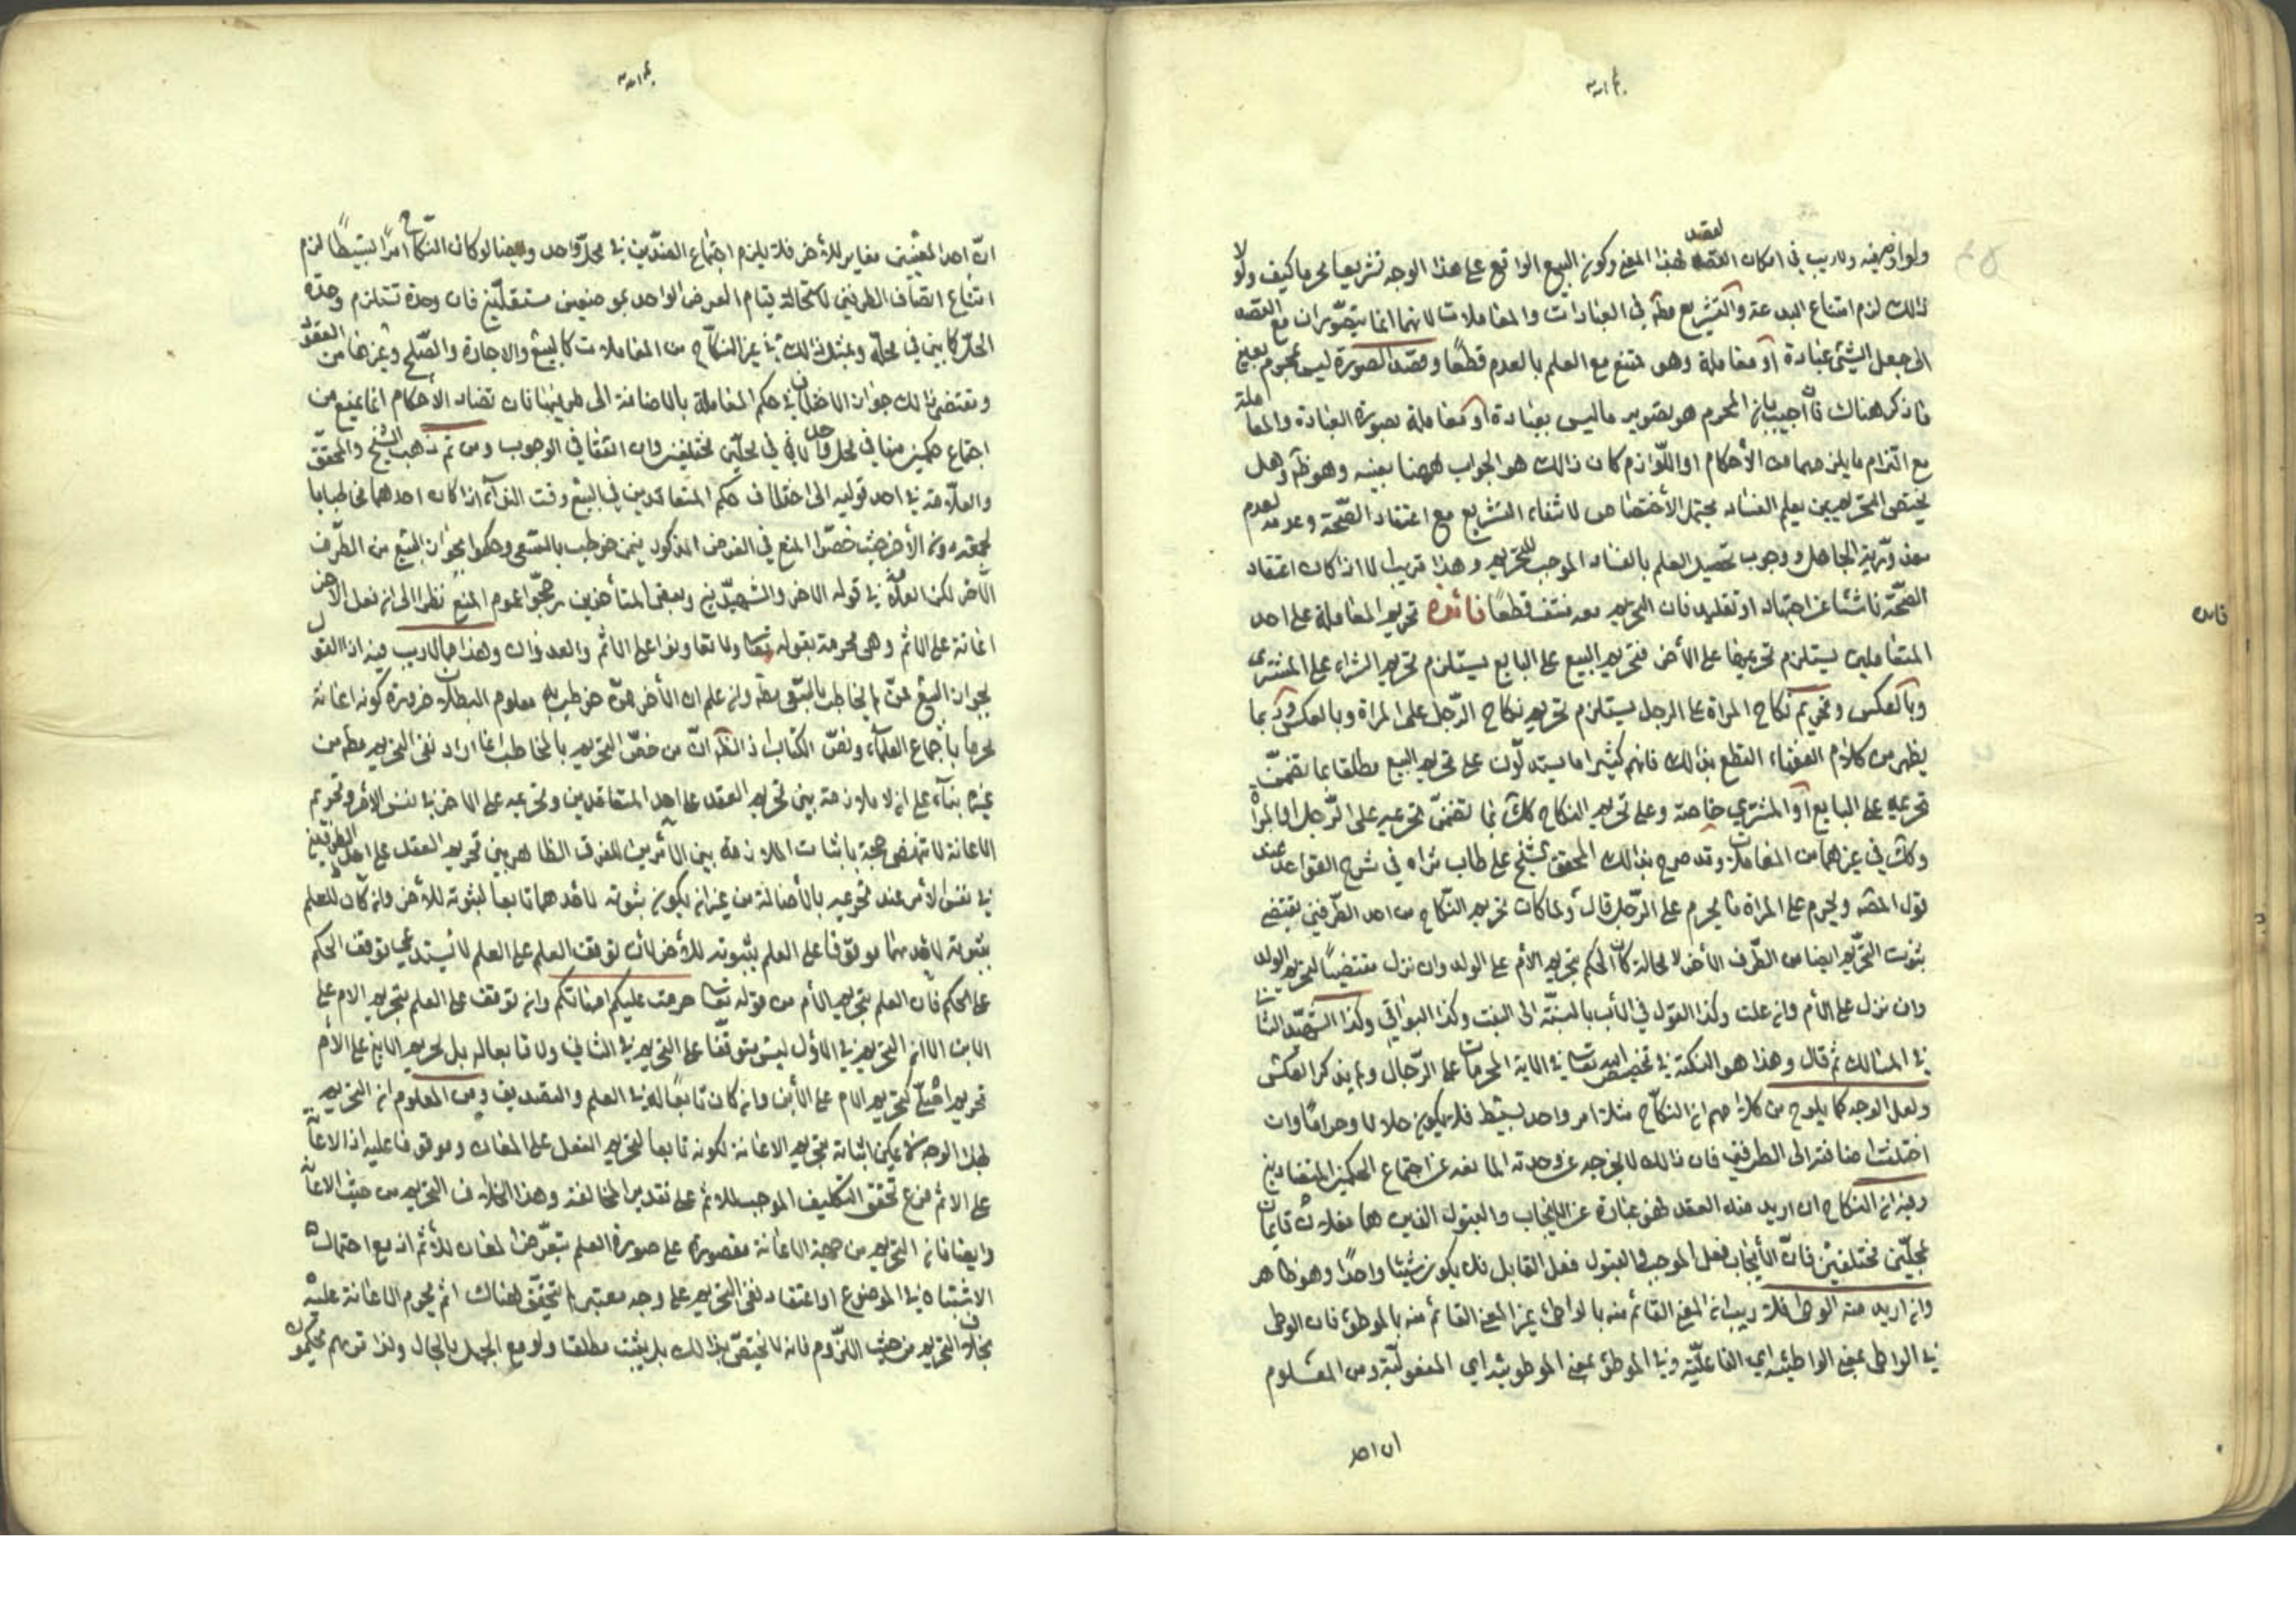 ولوازمه فيه ولا ريب في امكان القصد لهذا المعنى وكون البيع الواقع على هذا الوجه تشريعا محرما كيف ولولا
ذلك لزم امتناع البدعة والتشريع مطه في العبادات والمعاملات لانهما انما يتصوران مع القصد
الى جعل الشئ عبادة او معاملة وهو ممتنع مع العلم بالعدم قطعا وقصد الصورة ليس بمحرم يعني
فما ذكر هناك فان اجيب بان المحرم هو تصوير ما ليس بعبادة او معاملة بصورة العبادة والمعاملة
مع التزام ما يلزمهما من الأحكام او اللوازم كان ذالك هو الجواب ههنا بعينه وهو ظه وهل
يختص التحريم بمن يعلم الفساد يحتمل الأختصاص لانتفاء التشريع مع اعتقاد الصحة وعدمه لعدم
معذورية الجاهل ووجوب تحصيل العلم بالفساد الموجب للتحريم وهذا قريب الا اذا كان اعتقاد
الصحة ناشئا عن اجتهاد او تقليد فان التحريم معه منتف قطعا فائدة تحريم المعاملة على احد
المتعاملين يستلزم تحريمها على الأخر فتحريم البيع على البايع يستلزم تحريم الشراء على المشتري
وبالعكس وتحريم نكاح المراة على الرجل يستلزم تحريم نكاح الرجل على المراة وبالعكس وربما
يظهر من كلام الفقهاء القطع بذلك فانهم كثيرا ما يستدلون على تحريم البيع مطلقا بما تضمن
تحريمه على البايع او المشتري خاصة وعلى تحريم النكاح كك بما تضمن تحريمه على الرجل او المراة
وكك في غيرهما من المعاملات وقد صرح بذلك المحقق الشيخ علي طاب ثراه في شرح القواعد عند
قول المصه ويحرم على المراة ما يحرم على الرجل قال ولما كان تحريم النكاح من احد الطرفين يقتضي
ثبوت التحريم ايضا من الطرف الأخر لا محالة كان الحكم بتحريم الأم على الولد وان نزل مقتضيا لتحريم الولد
وان نزل على الأم وان علت وكذا القول في الأب بالنسبة الى البنت وكذا البواقي وكذا الشهيد الثاني
في المسالك ثم قال وهذا هو النكتة في تخصيص الله تعالى في الاية المحرمات على الرجال ولم يذكر العكس
ولعل الوجه كما يلوح من كلامهم ان النكاح مثلا امر واحد بسيط فلا يكون حلالا وحراما وان
اختلفت اضافته الى الطرفين فان ذالك لا يخرجه عن وحدته المانعة عن اجتماع الحكمين المتضادين
وفيه ان النكاح ان اريد منه العقد فهو عبارة عن الايجاب والقبول الذين هما فعلان قايمان
بمحلين مختلفين فان الأيجاب فعل الموجب والقبول فعل القابل فلا يكون شيئا واحدا وهو ظاهر
وان اريد منه الوطى فلا ريب ان المعنى القائم منه بالواطئ غير المعنى القائم منه بالموطوء فان الوطى
في الواطى بمعنى الواطئية اي الفاعلية وفي الموطوء بمعنى الموطوئية اي المفعولية ومن المعلوم
ان احد
ان احد المعنيين مغاير للأخر فلا يلزم اجتماع الضدين في محل واحد وايضا لو كان النكاح امرا بسيطا لزم
امتناع اتصاف الطرفين لاستحالة قيام العرض الواحد بموضعين مستقلين فان وحدة تستلزم وحدة
المحل كما بين في محله وبمثل ذالك في غير النكاح من المعاملات كالبيع والاجارة والصلح وغيرها من العقود
ومقتضى ذالك جواز الاختلاف في حكم المعاملة بالاضافة الى طرفيها فان تضاد الأحكام انما يمنع من
اجتماع حكمين منها في محل واحد لا في محلين مختلفين وان اتفقا في الوجوب ومن ثم ذهب الشيخ والمحقق
والعلامة في احد قوليه الى اختلاف حكم المتعاقدين في البيع وقت النداء اذا كان احدهما مخاطبا
بالجمعة دون الأخر حيث خصوا المنع في الفرض المذكور بمن خوطب بالسعي وحكموا بجواز البيع من الطرف
الأخر لكن العلامة في قوله الاخر والشهيدين وبعض المتأخرين رجحوا عموم المنع نظرا الى ان فعل الاخر
اعانة على الاثم وهي محرمة بقوله تعالى ولا تعاونوا على الاثم والعدوان وهذا مما لا ريب فيه اذ القول
بجواز البيع ممن لم يخاطب بالسعي مطه وان علم ان الأخر ممن خوطب به معلوم البطلان ضرورة كونه اعانة
محرمة باجماع العلماء ونص الكتاب اذ الظه ان من خص التحريم بالمخاطب انما اراد نفي التحريم مطه من
غيره بناء على انه لا ملازمة بين تحريم العقد على احد المتعاقدين وتحريمه على الاخر في نفس الامر وتحريم
الاعانة لا تنهض حجة باثبات الملازمة بين الأمرين للفرق الظاهر بين تحريم العقد على احد الطرفين
في نفس الأمر عند تحريمه بالأصالة من غير ان يكون ثبوته لأحدهما تابعا لثبوته للأخر وان كان للعلم
بثبوته لاحدهما موقوفا على العلم بثبوته للأخر لان توقف العلم على العلم لا يستدعي توقف الحكم
على الحكم فان العلم بتحريم الأم من قوله تعالى حرمت عليكم امهاتكم وان توقف على العلم بتحريم الام على
الابن الا ان التحريم في الاول ليس متوقفا على التحريم في الثاني ولا تابعا له بل تحريم الابن على الأم
تحريم اصلي كتحريم الام على الأبن وان كان تابعا له في العلم والتصديق ومن المعلوم ان التحريم
بهذا الوجه لا يمكن اثباته بتحريم الاعانة لكونه تابعا لتحريم الفعل على المعان وموقوفا عليه اذ الاعانة
على الاثم فرع تحقق التكليف الموجب للاثم على تقدير المخالفة وهذا بخلاف التحريم من حيث الاعانة
وايضا فان التحريم من جهة الاعانة مقصورة على صورة العلم بتعرض المعان للأثم اذ مع احتمال
الاشتباه في الموضوع او اعتقاد نفي التحريم على وجه معتبر لم يتحقق هناك اثم يحرم الاعانة عليه
بخلاف التحريم من حيث اللزوم فانه لا يختص بذالك بل يثبت مطلقا ولو مع الجهل بالحال ولذا تريهم يحكمون